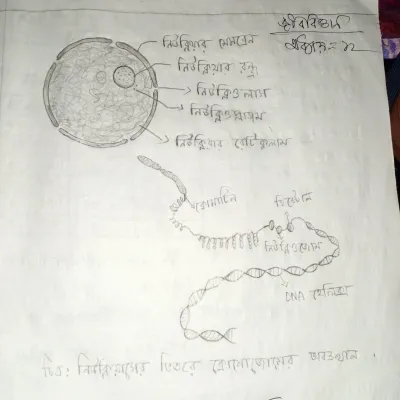 জীববিজ্ঞান
অধ্যায় = ২
নিউক্লিয়ার মেমব্রেন
নিউক্লিয়ার রন্ধ্র
নিউক্লিওলাস
নিউক্লিওপ্লাজম
নিউক্লিয়ার রেটিকুলাম
ক্রোমাটিন
হিস্টোন
নিউক্লিওজোম
DNA হেলিক্স
চিত্র: নিউক্লিয়াসের ভিতরে ক্রোমোজোমের অবস্থান।